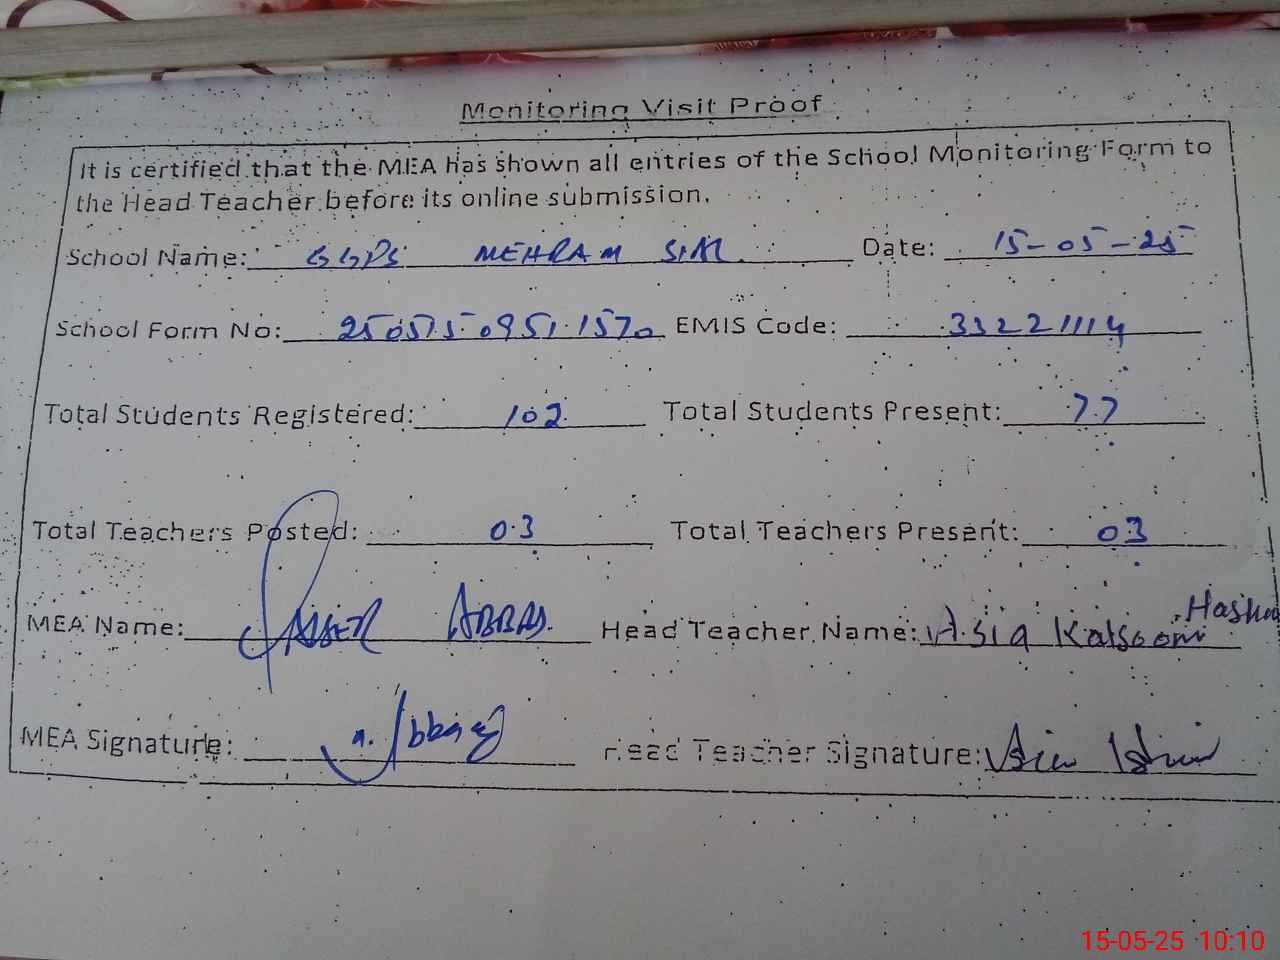 Monitoring Visit Proof
It is certified that the MEA has shown all entries of the School Monitoring Form to
the Head Teacher before its online submission.
School Name: GGPS MEHRAM SIAL Date: 15-05-25
School Form No: 250515 0951 1570 EMIS Code: 33221114
Total Students Registered: 102 Total Students Present: 77
Total Teachers Posted: 03 Total Teachers Present: 03
MEA Name: ABBAS Head Teacher Name: Asia Kalsoom
MEA Signature: Head Teacher Signature:
15-05-25 10:10